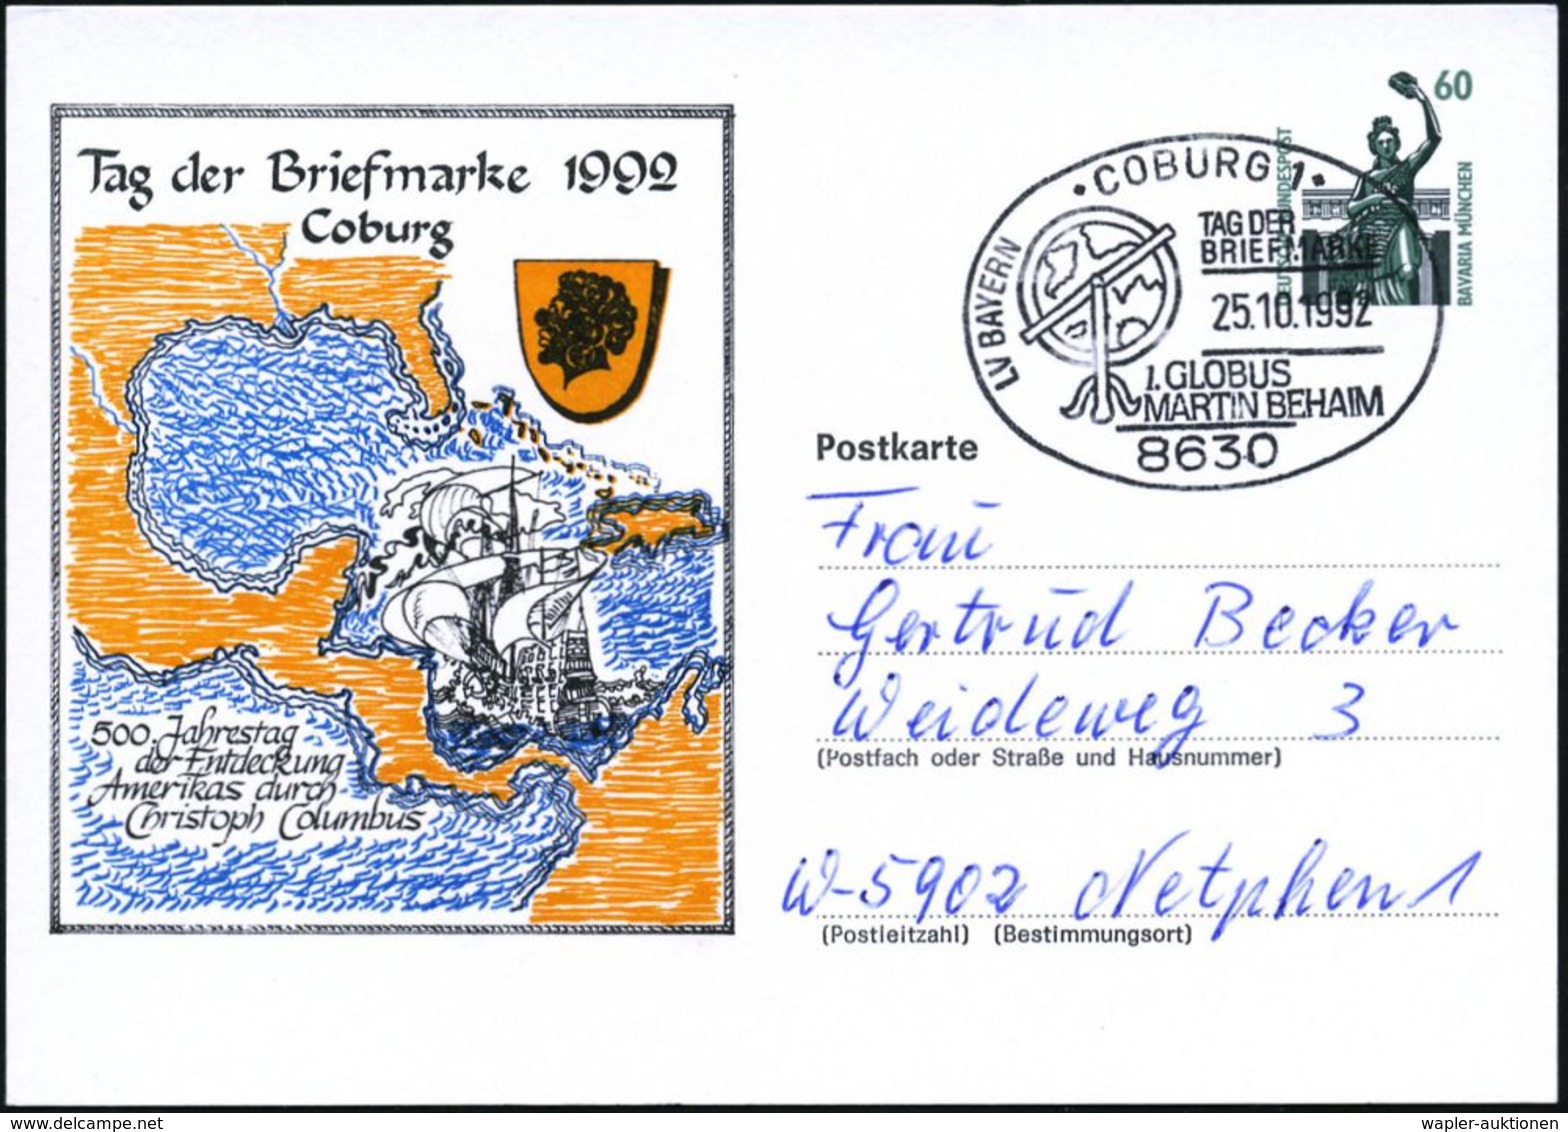 Tag der Briefmarke 1992
Coburg
500. Jahrestag
der Entdeckung
Amerikas durch
Christoph Columbus
60
DEUTSCHE BUNDESPOST
BAVARIA MÜNCHEN
COBURG 1
LV BAYERN
TAG DER
BRIEFMARKE
25.10.1992
1. GLOBUS
MARTIN BEHAIM
8630
Postkarte
Frau
Gertrud Becker
Weideweg 3
(Postfach oder Straße und Hausnummer)
W-5902 Netphen 1
(Postleitzahl) (Bestimmungsort)
wapler-auktionen